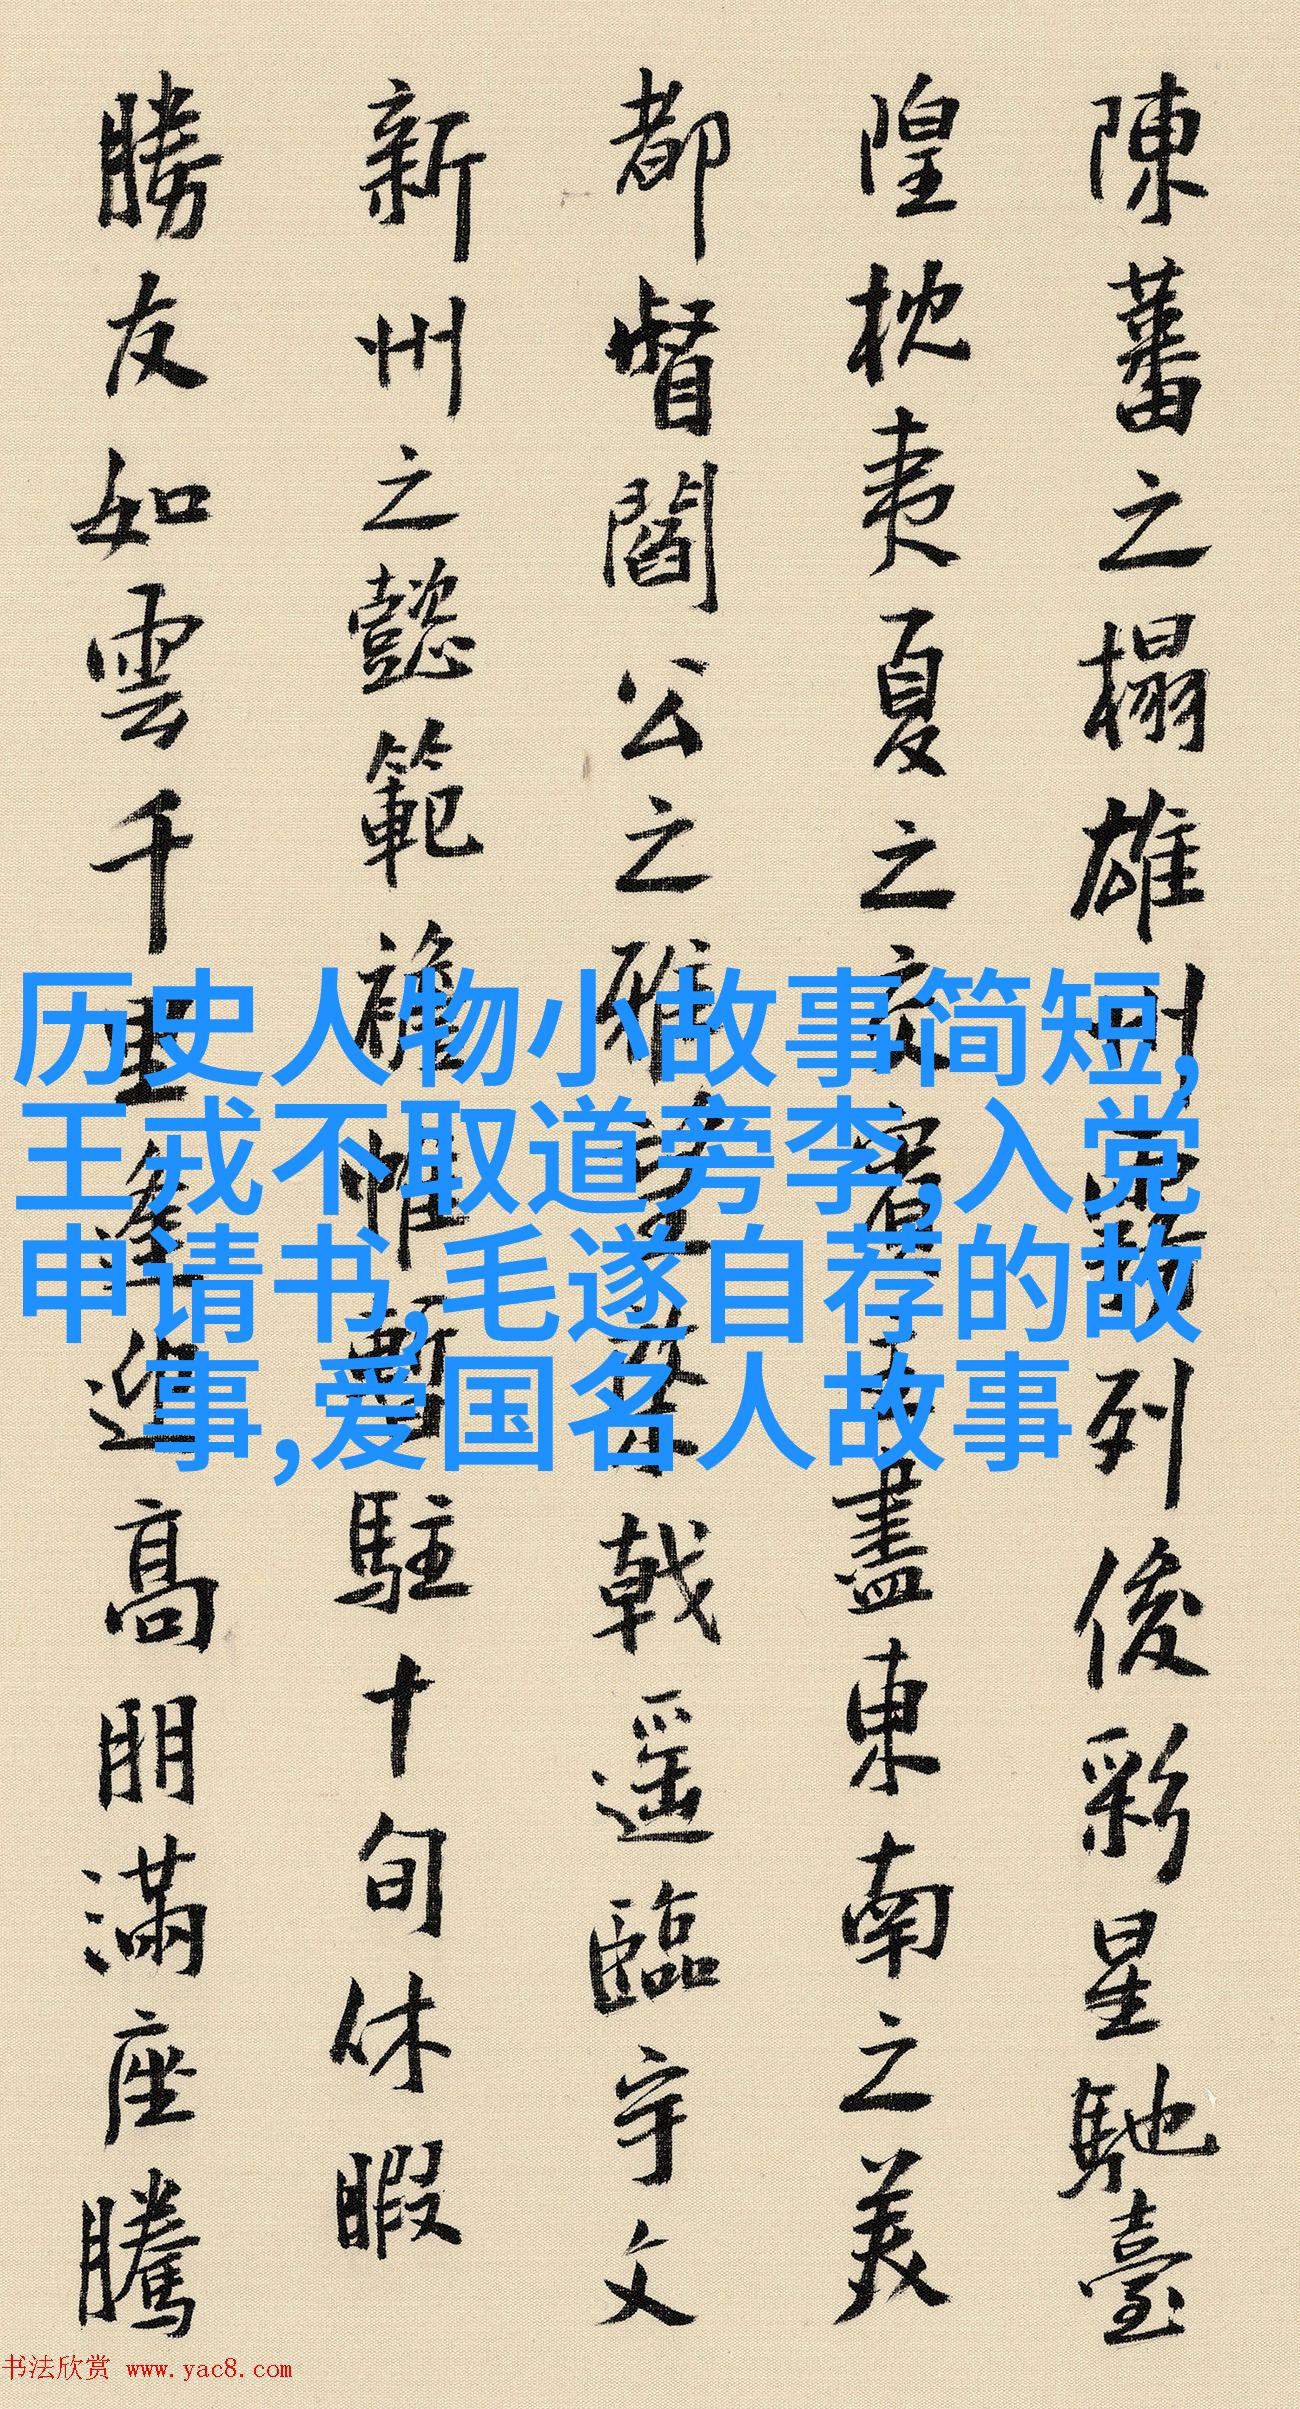 陳蕃之榻雄州霧列俊彩星馳臺
隍枕夷夏之交賓主盡東南之美
都督閻公之雅望棨戟遥臨宇文
新州之懿範襜帷暫駐十旬休暇
勝友如雲千里逢迎高朋滿座騰
历史人物小故事简短,
王戎不取道旁李,入党
申请书,毛遂自荐的故
事,爱国名人故事
书法欣赏 www.yac8.com